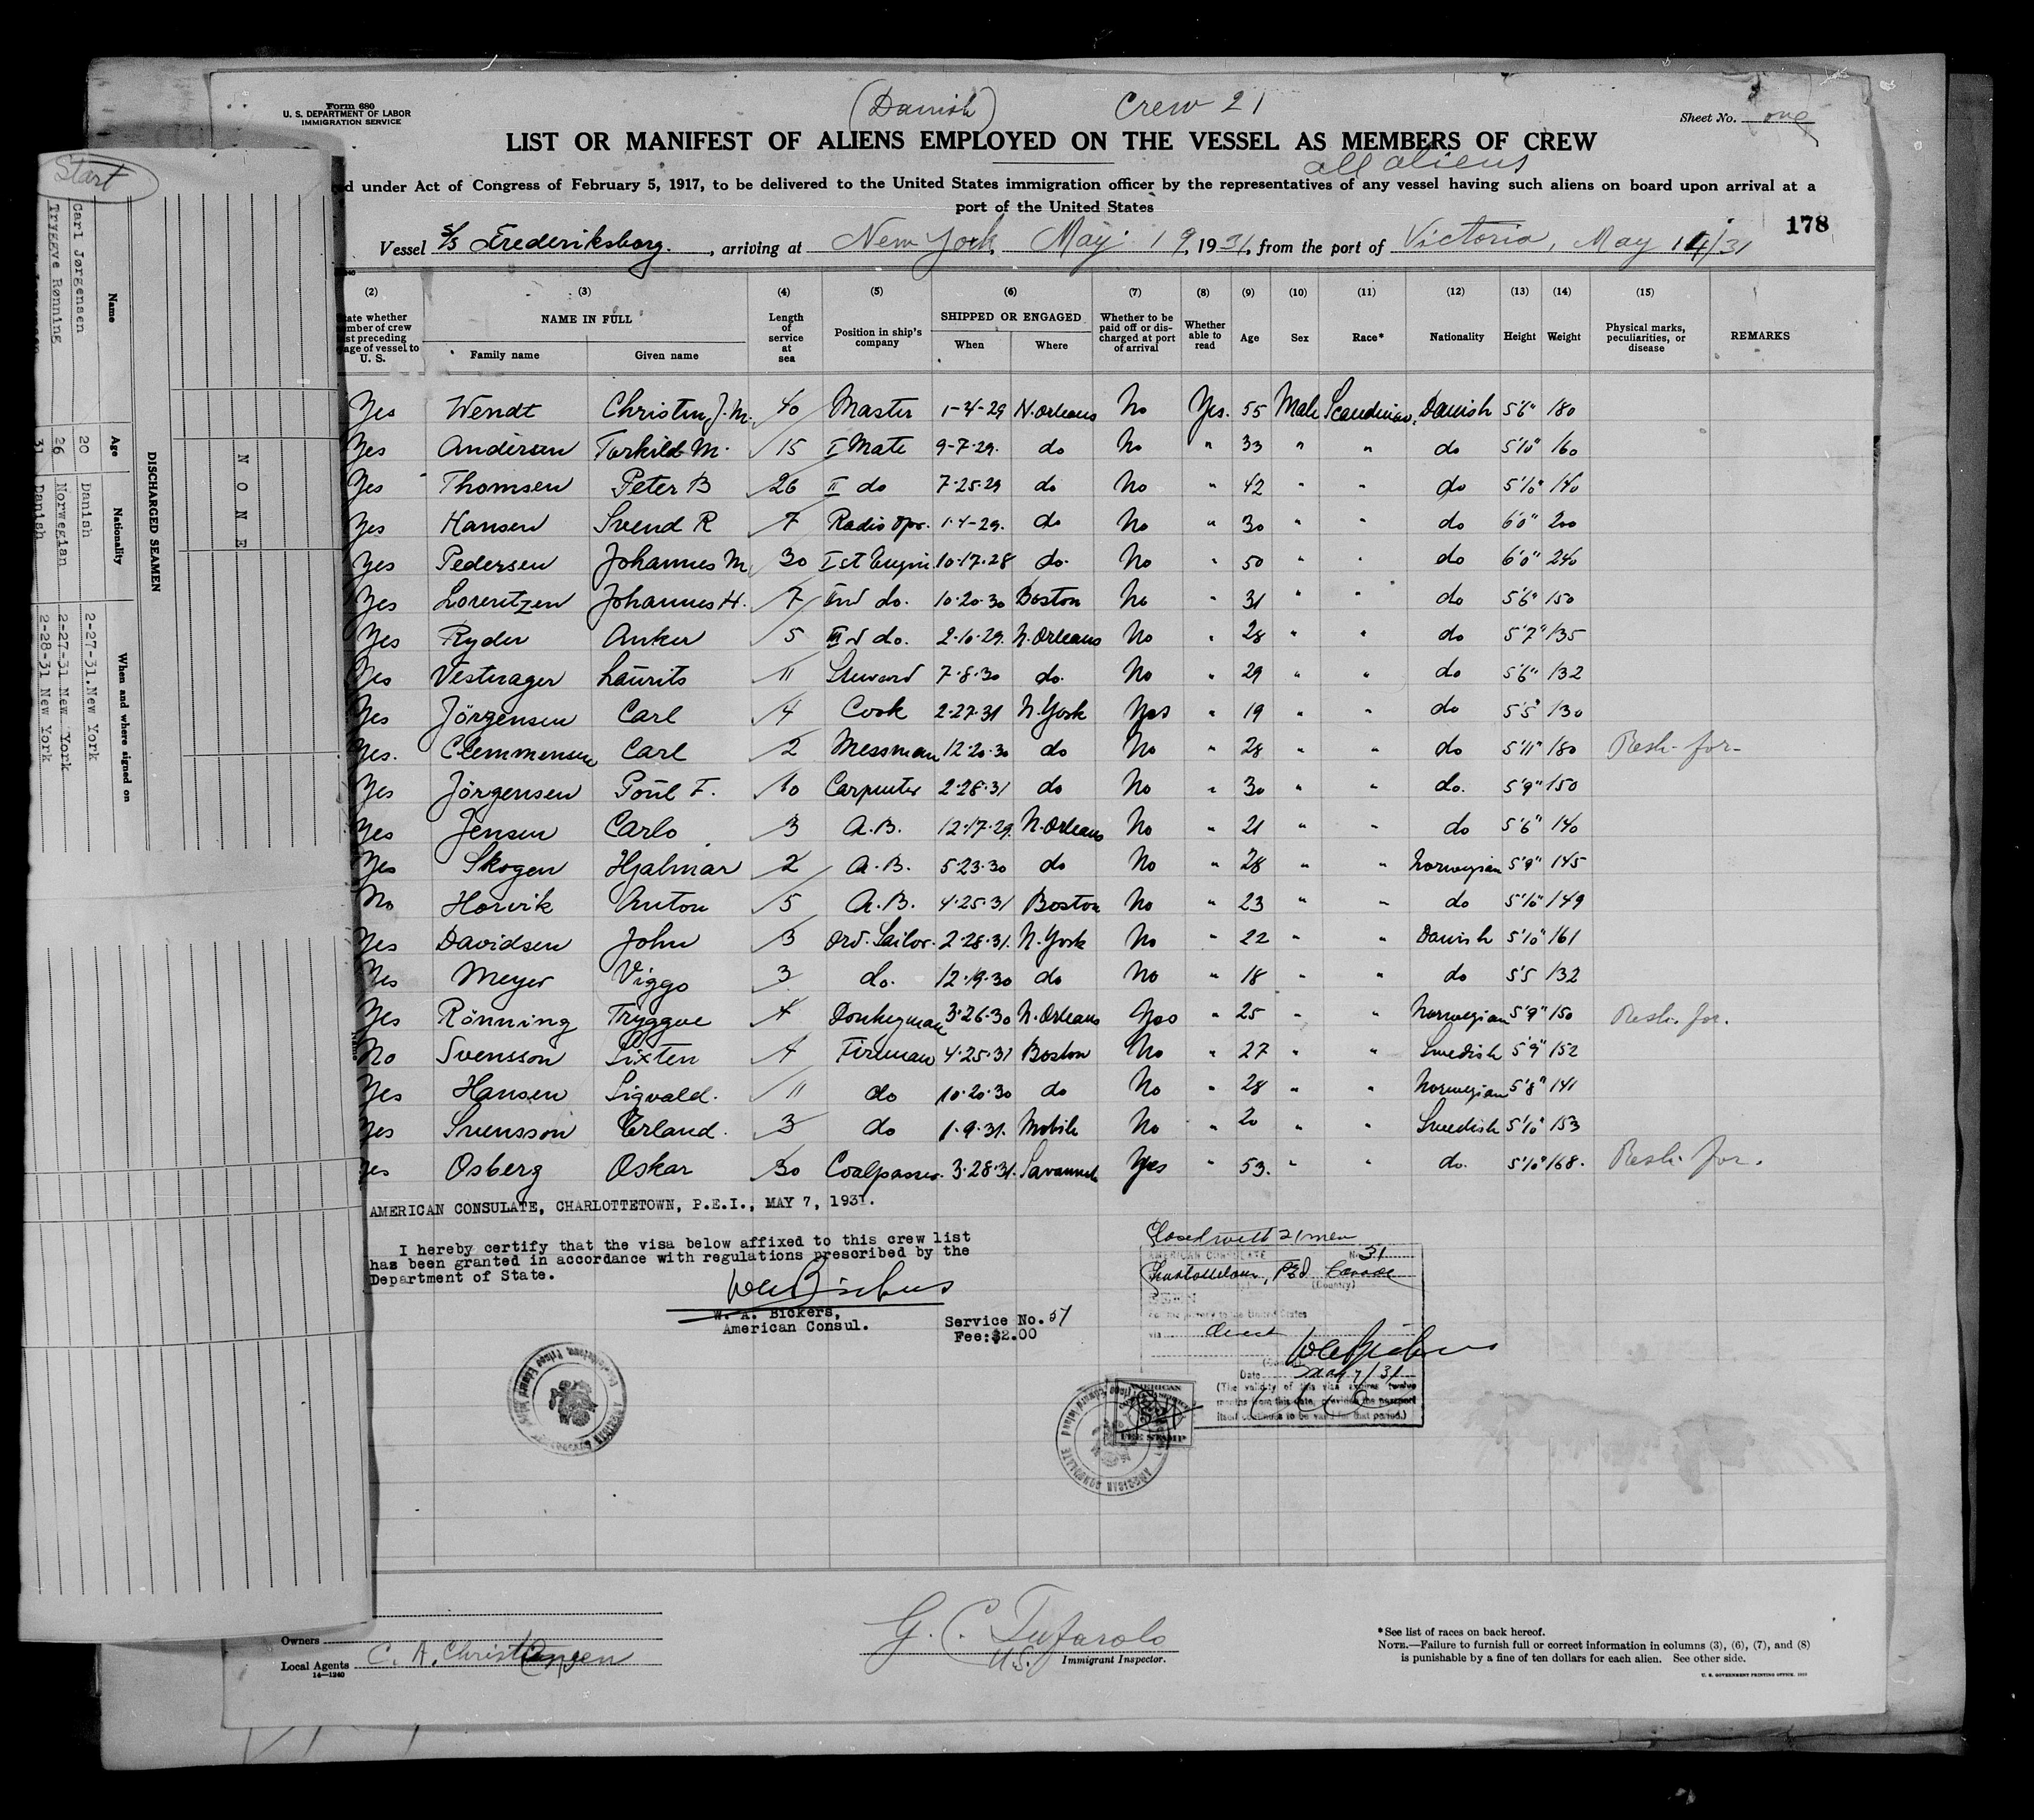 Form 680
U. S. DEPARTMENT OF LABOR
IMMIGRATION SERVICE
(Danish) Crew 21
Sheet No. one
LIST OR MANIFEST OF ALIENS EMPLOYED ON THE VESSEL AS MEMBERS OF CREW
all aliens
d under Act of Congress of February 5, 1917, to be delivered to the United States immigration officer by the representatives of any vessel having such aliens on board upon arrival at a
port of the United States
178
Vessel S/S Frederiksborg., arriving at New York, May 19, 1931, from the port of Victoria, May 14/31
(2) (3) (4) (5) (6) (7) (8) (9) (10) (11) (12) (13) (14) (15)
tate whether mber of crew st preceding age of vessel to U. S. NAME IN FULL Family name Given name Length of service at sea Position in ship's company SHIPPED OR ENGAGED When Where Whether to be paid off or discharged at port of arrival Whether able to read Age Sex Race* Nationality Height Weight Physical marks, peculiarities, or disease REMARKS
Yes Wendt Christen J. M. 40 Master 1-4-29 N. Orleans No Yes. 55 Male Scandinav. Danish 5'6" 180
Yes Andersen Torkild M. 15 I Mate 9-7-29. do No " 33 " " do 5'10" 160
Yes Thomsen Peter B 26 II do 7-25-29 do No " 42 " " do 5'10" 140
Yes Hansen Svend R 7 Radio Opr. 1-4-29. do No " 30 " " do 6'0" 200
Yes Pedersen Johannes M. 30 Ist Engin 10-17-28 do. No " 50 " " do 6'0" 240
Yes Lorentzen Johannes H. 7 IInd do. 10-20-30 Boston No " 31 " " do 5'6" 150
Yes Ryder Anker 5 IIIrd do. 2-10-29. N. Orleans No " 28 " " do 5'7" 135
Yes Vesterager Laurits 11 Steward 7-8-30 do. No " 29 " " do 5'6" 132
Yes Jörgensen Carl 4 Cook 2-27-31 N. York Yes " 19 " " do 5'5" 130
Yes. Clemmensen Carl 2 Messman 12-20-30 do No " 28 " " do 5'11" 180 Resh. for-
Yes Jörgensen Poul F. 10 Carpenter 2-28-31 do No " 30 " " do. 5'9" 150
Yes Jensen Carlo 3 A.B. 12-17-29. N. Orleans No " 21 " " do 5'6" 140
Yes Skogen Hjalmar 2 A.B. 5-23-30 do No " 28 " " Norwegian 5'9" 145
No Horvik Anton 5 A.B. 4-25-31 Boston No " 23 " " do 5'10" 149
Yes Davidsen John 3 Ord. Sailor. 2-28-31. N. York No " 22 " " Danish 5'10" 161
Yes Meyer Viggo 3 do. 12-19-30 do No " 18 " " do 5'5 132
Yes Rönning Tryggve 4 Donkeyman 3-26-30 N. Orleans Yes " 25 " " Norwegian 5'9" 150 Resh. for.
No Svensson Sixten 4 Fireman 4-25-31 Boston No " 27 " " Swedish 5'9" 152
Yes Hansen Sigvald. 11 do 10-20-30 do No " 28 " " Norwegian 5'8" 141
Yes Svensson Erland. 3 do 1-9-31. Mobile No " 20 " " Swedish 5'10" 153
Yes Osberg Oskar 30 Coalpasser. 3-28-31. Savannah Yes " 53. " " do. 5'10" 168. Resh. for.
AMERICAN CONSULATE, CHARLOTTETOWN, P.E.I., MAY 7, 1931.
I hereby certify that the visa below affixed to this crew list
has been granted in accordance with regulations prescribed by the
Department of State.
W. A. Bickers,
American Consul.
Service No. 51
Fee: $2.00
Closed with 21 men
AMERICAN CONSULATE No. 31
Charlottetown, P.E.I. Canada
(Country)
SEEN
For the journey to the United States
via direct
Date May 7/31
(The validity of this visa expires twelve
months from this date, provided the passport
itself continues to be valid for that period.)
AMERICAN
FEE STAMP
AMERICAN CONSULATE
Owners
Local Agents C. A. Christiansen
14—1240
G. C. Tufarolo
U.S. Immigrant Inspector.
*See list of races on back hereof.
NOTE.—Failure to furnish full or correct information in columns (3), (6), (7), and (8)
is punishable by a fine of ten dollars for each alien. See other side.
U. S. GOVERNMENT PRINTING OFFICE
Start
NONE
DISCHARGED SEAMEN
Name Age Nationality When and where signed on
Carl Jørgensen 20 Danish 2-27-31. New York
Tryggve Rønning 26 Norwegian 2-27-31 New York
31 Danish 2-28-31 New York